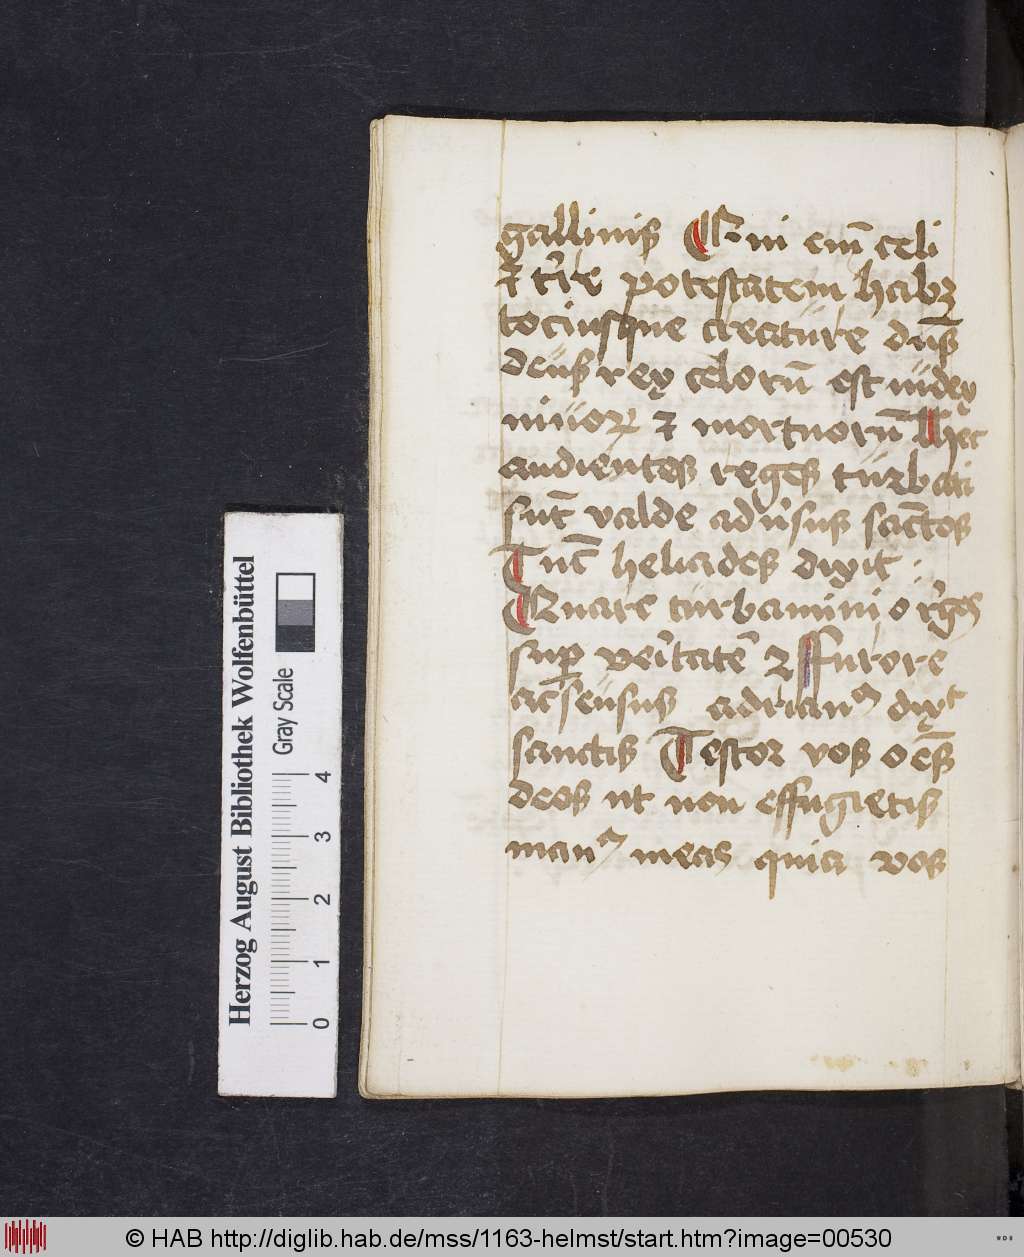 gallinis Qui em̄ celi
et t̄re potestatem habꝫ
tociusque creature dn̄s
deus rex celorū est iudex
uiuoꝝ et mortuorū Hec
audientes reges turbati
sūt valde adūsus sāctos
Tūc heliades dixit
Quare turbamini o reges
sup̄ veritatē et ffurore
acsensus adrianꝰ dixit
sanctis Testor vos oēs
deos ut non effugietis
manꝰ meas quia vos
Herzog August Bibliothek Wolfenbüttel
Gray Scale
0 1 2 3 4
© HAB http://diglib.hab.de/mss/1163-helmst/start.htm?image=00530